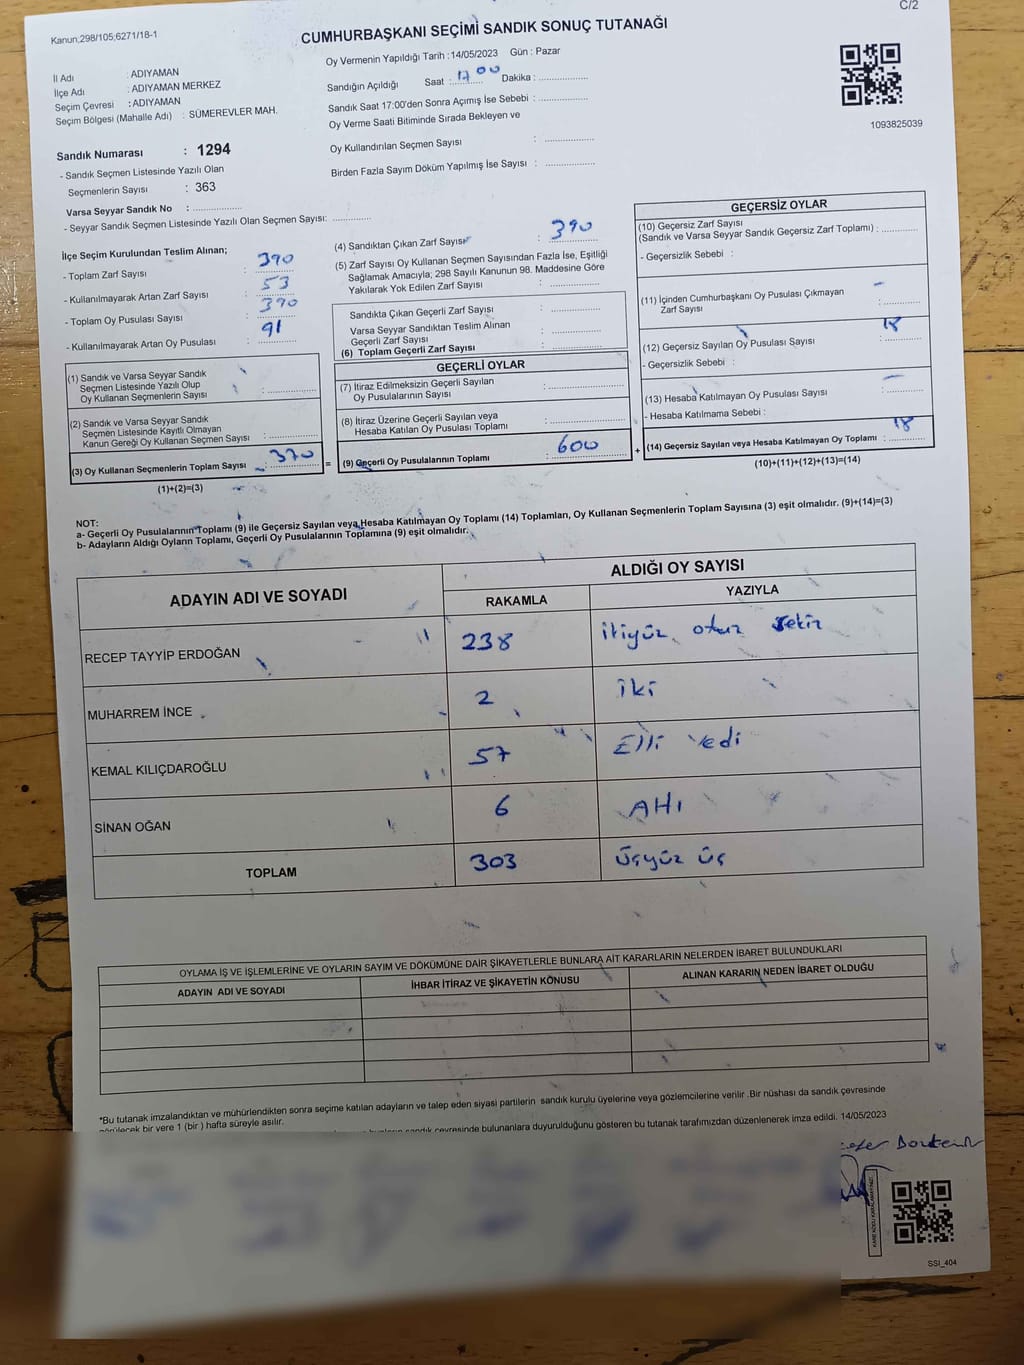 C/2
Kanun,298/105;6271/18-1
CUMHURBAŞKANI SEÇİMİ SANDIK SONUÇ TUTANAĞI
Oy Vermenin Yapıldığı Tarih :14/05/2023 Gün : Pazar
İl Adı : ADIYAMAN
İlçe Adı : ADIYAMAN MERKEZ
Seçim Çevresi : ADIYAMAN
Seçim Bölgesi (Mahalle Adı) : SÜMEREVLER MAH.
Sandığın Açıldığı Saat : 17 00 Dakika : ..................
Sandık Saat 17:00'den Sonra Açımış İse Sebebi : ..................
Oy Verme Saati Bitiminde Sırada Bekleyen ve
Oy Kullandırılan Seçmen Sayısı : ..................
Birden Fazla Sayım Döküm Yapılmış İse Sayısı : ..................
1093825039
Sandık Numarası : 1294
- Sandık Seçmen Listesinde Yazılı Olan
Seçmenlerin Sayısı : 363
Varsa Seyyar Sandık No : ..................
- Seyyar Sandık Seçmen Listesinde Yazılı Olan Seçmen Sayısı: ..............
İlçe Seçim Kurulundan Teslim Alınan;
- Toplam Zarf Sayısı : 390
- Kullanılmayarak Artan Zarf Sayısı : 53
- Toplam Oy Pusulası Sayısı : 390
- Kullanılmayarak Artan Oy Pusulası : 91
(1) Sandık ve Varsa Seyyar Sandık
Seçmen Listesinde Yazılı Olup
Oy Kullanan Seçmenlerin Sayısı : ..................
(2) Sandık ve Varsa Seyyar Sandık
Seçmen Listesinde Kayıtlı Olmayan
Kanun Gereği Oy Kullanan Seçmen Sayısı : ..................
(3) Oy Kullanan Seçmenlerin Toplam Sayısı : 370 =
(1)+(2)=(3)
(4) Sandıktan Çıkan Zarf Sayısı : 390
(5) Zarf Sayısı Oy Kullanan Seçmen Sayısından Fazla İse, Eşitliği
Sağlamak Amacıyla; 298 Sayılı Kanunun 98. Maddesine Göre
Yakılarak Yok Edilen Zarf Sayısı : ..................
Sandıkta Çıkan Geçerli Zarf Sayısı : ..................
Varsa Seyyar Sandıktan Teslim Alınan
Geçerli Zarf Sayısı : ..................
(6) Toplam Geçerli Zarf Sayısı
GEÇERLİ OYLAR
(7) İtiraz Edilmeksizin Geçerli Sayılan
Oy Pusulasının Sayısı : ..................
(8) İtiraz Üzerine Geçerli Sayılan veya
Hesaba Katılan Oy Pusulası Toplamı : ..................
(9) Geçerli Oy Pusulalarının Toplamı : 600 +
GEÇERSİZ OYLAR
(10) Geçersiz Zarf Sayısı
(Sandık ve Varsa Seyyar Sandık Geçersiz Zarf Toplamı) : ..............
- Geçersizlik Sebebi :
(11) İçinden Cumhurbaşkanı Oy Pusulası Çıkmayan
Zarf Sayısı : -
(12) Geçersiz Sayılan Oy Pusulası Sayısı : 18
- Geçersizlik Sebebi :
(13) Hesaba Katılmayan Oy Pusulası Sayısı : -
- Hesaba Katılmama Sebebi :
(14) Geçersiz Sayılan veya Hesaba Katılmayan Oy Toplamı : 18
(10)+(11)+(12)+(13)=(14)
NOT:
a- Geçerli Oy Pusulalarının Toplamı (9) ile Geçersiz Sayılan veya Hesaba Katılmayan Oy Toplamı (14) Toplamları, Oy Kullanan Seçmenlerin Toplam Sayısına (3) eşit olmalıdır. (9)+(14)=(3)
b- Adayların Aldığı Oyların Toplamı, Geçerli Oy Pusulalarının Toplamına (9) eşit olmalıdır.
ADAYIN ADI VE SOYADI
ALDIĞI OY SAYISI
RAKAMLA YAZIYLA
RECEP TAYYİP ERDOĞAN 238 ikiyüz otuz sekiz
MUHARREM İNCE 2 iki
KEMAL KILIÇDAROĞLU 57 Elli Yedi
SİNAN OĞAN 6 Altı
TOPLAM 303 üçyüz üç
OYLAMA İŞ VE İŞLEMLERİNE VE OYLARIN SAYIM VE DÖKÜMÜNE DAİR ŞİKAYETLERLE BUNLARA AİT KARARLARIN NELERDEN İBARET BULUNDUKLARI
ADAYIN ADI VE SOYADI İHBAR İTİRAZ VE ŞİKAYETİN KONUSU ALINAN KARARIN NEDEN İBARET OLDUĞU
*Bu tutanak imzalandıktan ve mühürlendikten sonra seçime katılan adayların ve talep eden siyasi partilerin sandık kurulu üyelerine veya gözlemcilerine verilir .Bir nüshası da sandık çevresinde
görülecek bir yere 1 (bir ) hafta süreyle asılır.
sandık çevresinde bulunanlara duyurulduğunu gösteren bu tutanak tarafımızdan düzenlenerek imza edildi. 14/05/2023
SSI_404